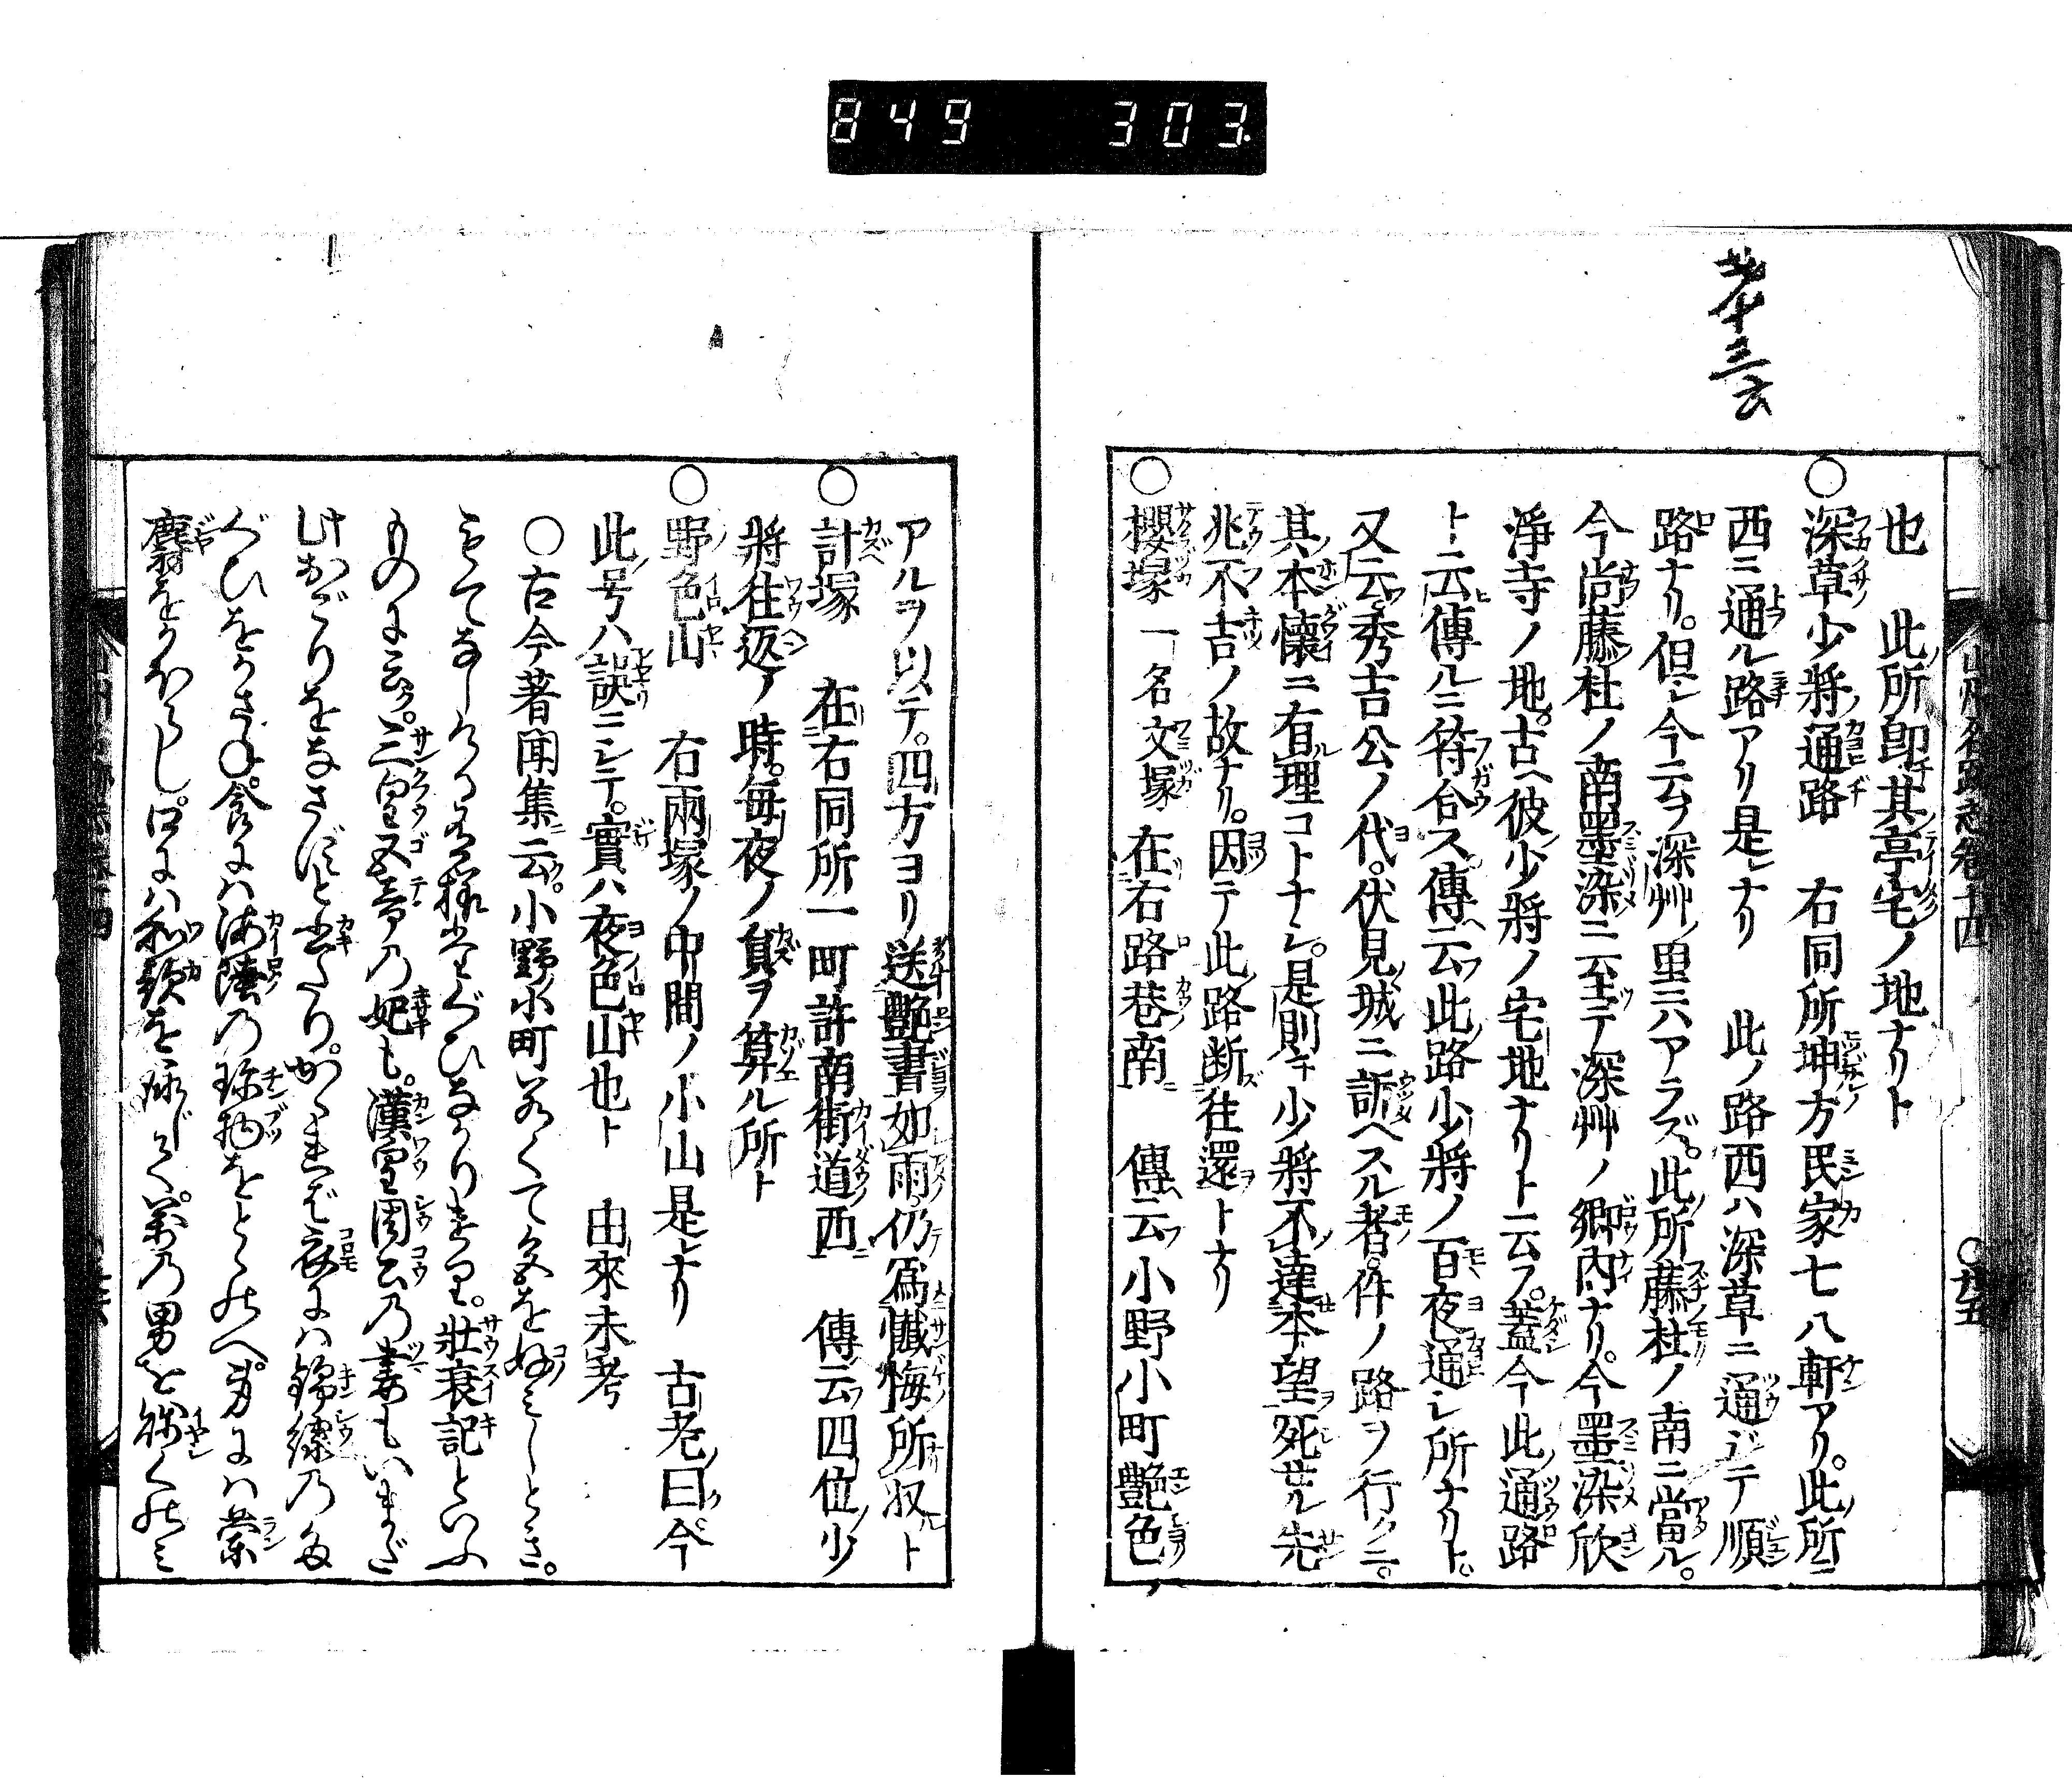 849 303.
山州名跡志卷十四
○廿五
也 此所即其亭宅ノ地ナリト
○深草少將通路 右同所坤方民家七八軒アリ。此所ニ
西ニ通ル路アリ是レナリ 此ノ路西ハ深草ニ通ジテ順
路ナリ。但シ今云フ深艸ノ里ニハアラズ。此所藤杜ノ南ニ當ル。
今尚藤杜ノ南墨染ニ至テ深艸ノ郷内ナリ。今墨染欣
淨寺ノ地。古ヘ彼少將ノ宅地ナリト云フ。蓋今此通路
ト云傳ルニ符合ス傳ヘ云フ此路少將ノ百夜通シ所ナリト。
又云フ。秀吉公ノ代。伏見城ニ訴ヘスル者。件ノ路ヲ行クニ。
其本懷ニ有ル理コトナシ。是則チ少將不達本望死セル先
兆不吉ノ故ナリ。因テ此路断往還ヲトナリ
○櫻塚 一名文塚 在右路巷南 傳云フ小野小町艷色ノ
アルヲ以テ。四方ヨリ送艷書如雨。仍爲懺悔所収ト
○計塚 在右同所一町許南街道西 傳云フ四位少
將往返ノ時。毎夜ノ員ヲ算ル所ト
○野色山 右兩塚ノ中間ノ小山是レナリ 古老ノ曰ク今
此号ハ誤ニシテ。實ハ夜色山也ト 由來未考
○古今著聞集ニ云。小野小町若くて色を好みしとき。
もてなしける有樣たぐひなかりけり。壯衰記といふ
ものに云ク。三皇五帝の妃も。漢王周公の妻もいまだ
此おごりをなさずと書たり。かゝれば衣には錦繡のた
ぐひをかさね。食には海陸の珍物をとゝのへ。身には蘭
麝をかほらし。口には和歌を詠じて。萬の男を賤くのミ